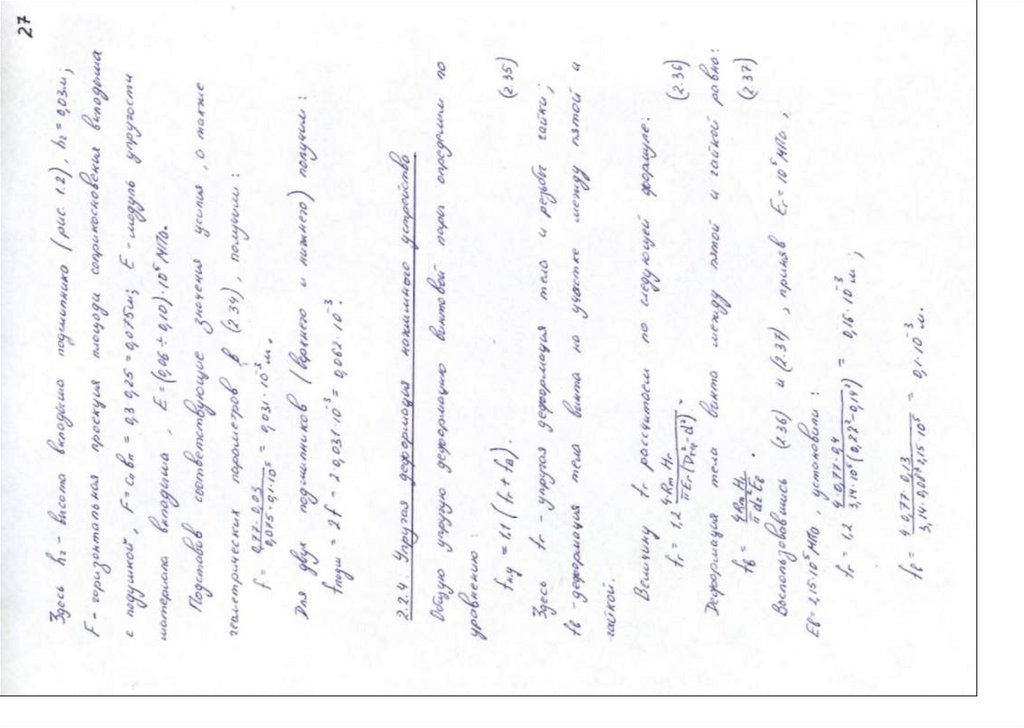 27
Здесь h₂ - высота вкладыша подшипника (рис. 1.2), h₂ = 0,03м;
F - горизонтальная проекция площади соприкосновения вкладыша
с подушкой, F = = 0,3·0,25 = 0,075м; E - модуль упругости
материала вкладыша, E = (0,06 ÷ 0,10)·10⁵ МПа.
Подставив соответствующие значения усилия, а также
геометрических параметров в (2.34), получим:
f = 0,77·0,03 / 0,075·0,1·10⁵ = 0,031·10⁻³ м.
Для двух подшипников (верхнего и нижнего) получим:
= 2f = 2·0,031·10⁻³ = 0,062·10⁻³.
2.2.4. Упругая деформация нажимного устройства.
Общую упругую деформацию винтовой пары определим по
уравнению:
= 1.1 (fг + fв). (2.35)
Здесь fг - упругая деформация тела и резьбы гайки;
fв - деформация тела винта на участке между пятой и
гайкой.
Величину fг рассчитаем по следующей формуле:
fг = 1,2 4·Rm Hг / πEг·(D²-d²). (2.36)
Деформация тела винта между пятой и гайкой равна:
fв = 4Rm H / π d₂² Eв. (2.37)
Воспользовавшись (2.36) и (2.37), приняв Eг = 10⁵ МПа,
Eв = 2,15·10⁵ МПа, установим:
fг = 1,2 4·0,77·0,4 / 3,14·10⁵( ) = 0,16·10⁻³ м;
fв = 4·0,77·0,13 / = 0,1·10⁻³ м.